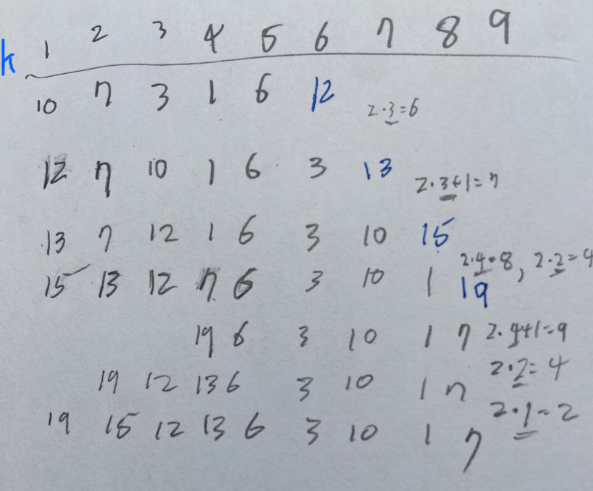 k 1 2 3 4 5 6 7 8 9
10 7 3 1 6 12 2·3=6
12 7 10 1 6 3 13 2·3+1=7
13 7 12 1 6 3 10 15
15 13 12 7 6 3 10 1 19 2·4=8, 2·2=4
19 6 3 10 1 7 2·4+1=9
19 12 13 6 3 10 1 7 2·2=4
19 15 12 13 6 3 10 1 7 2·1=2